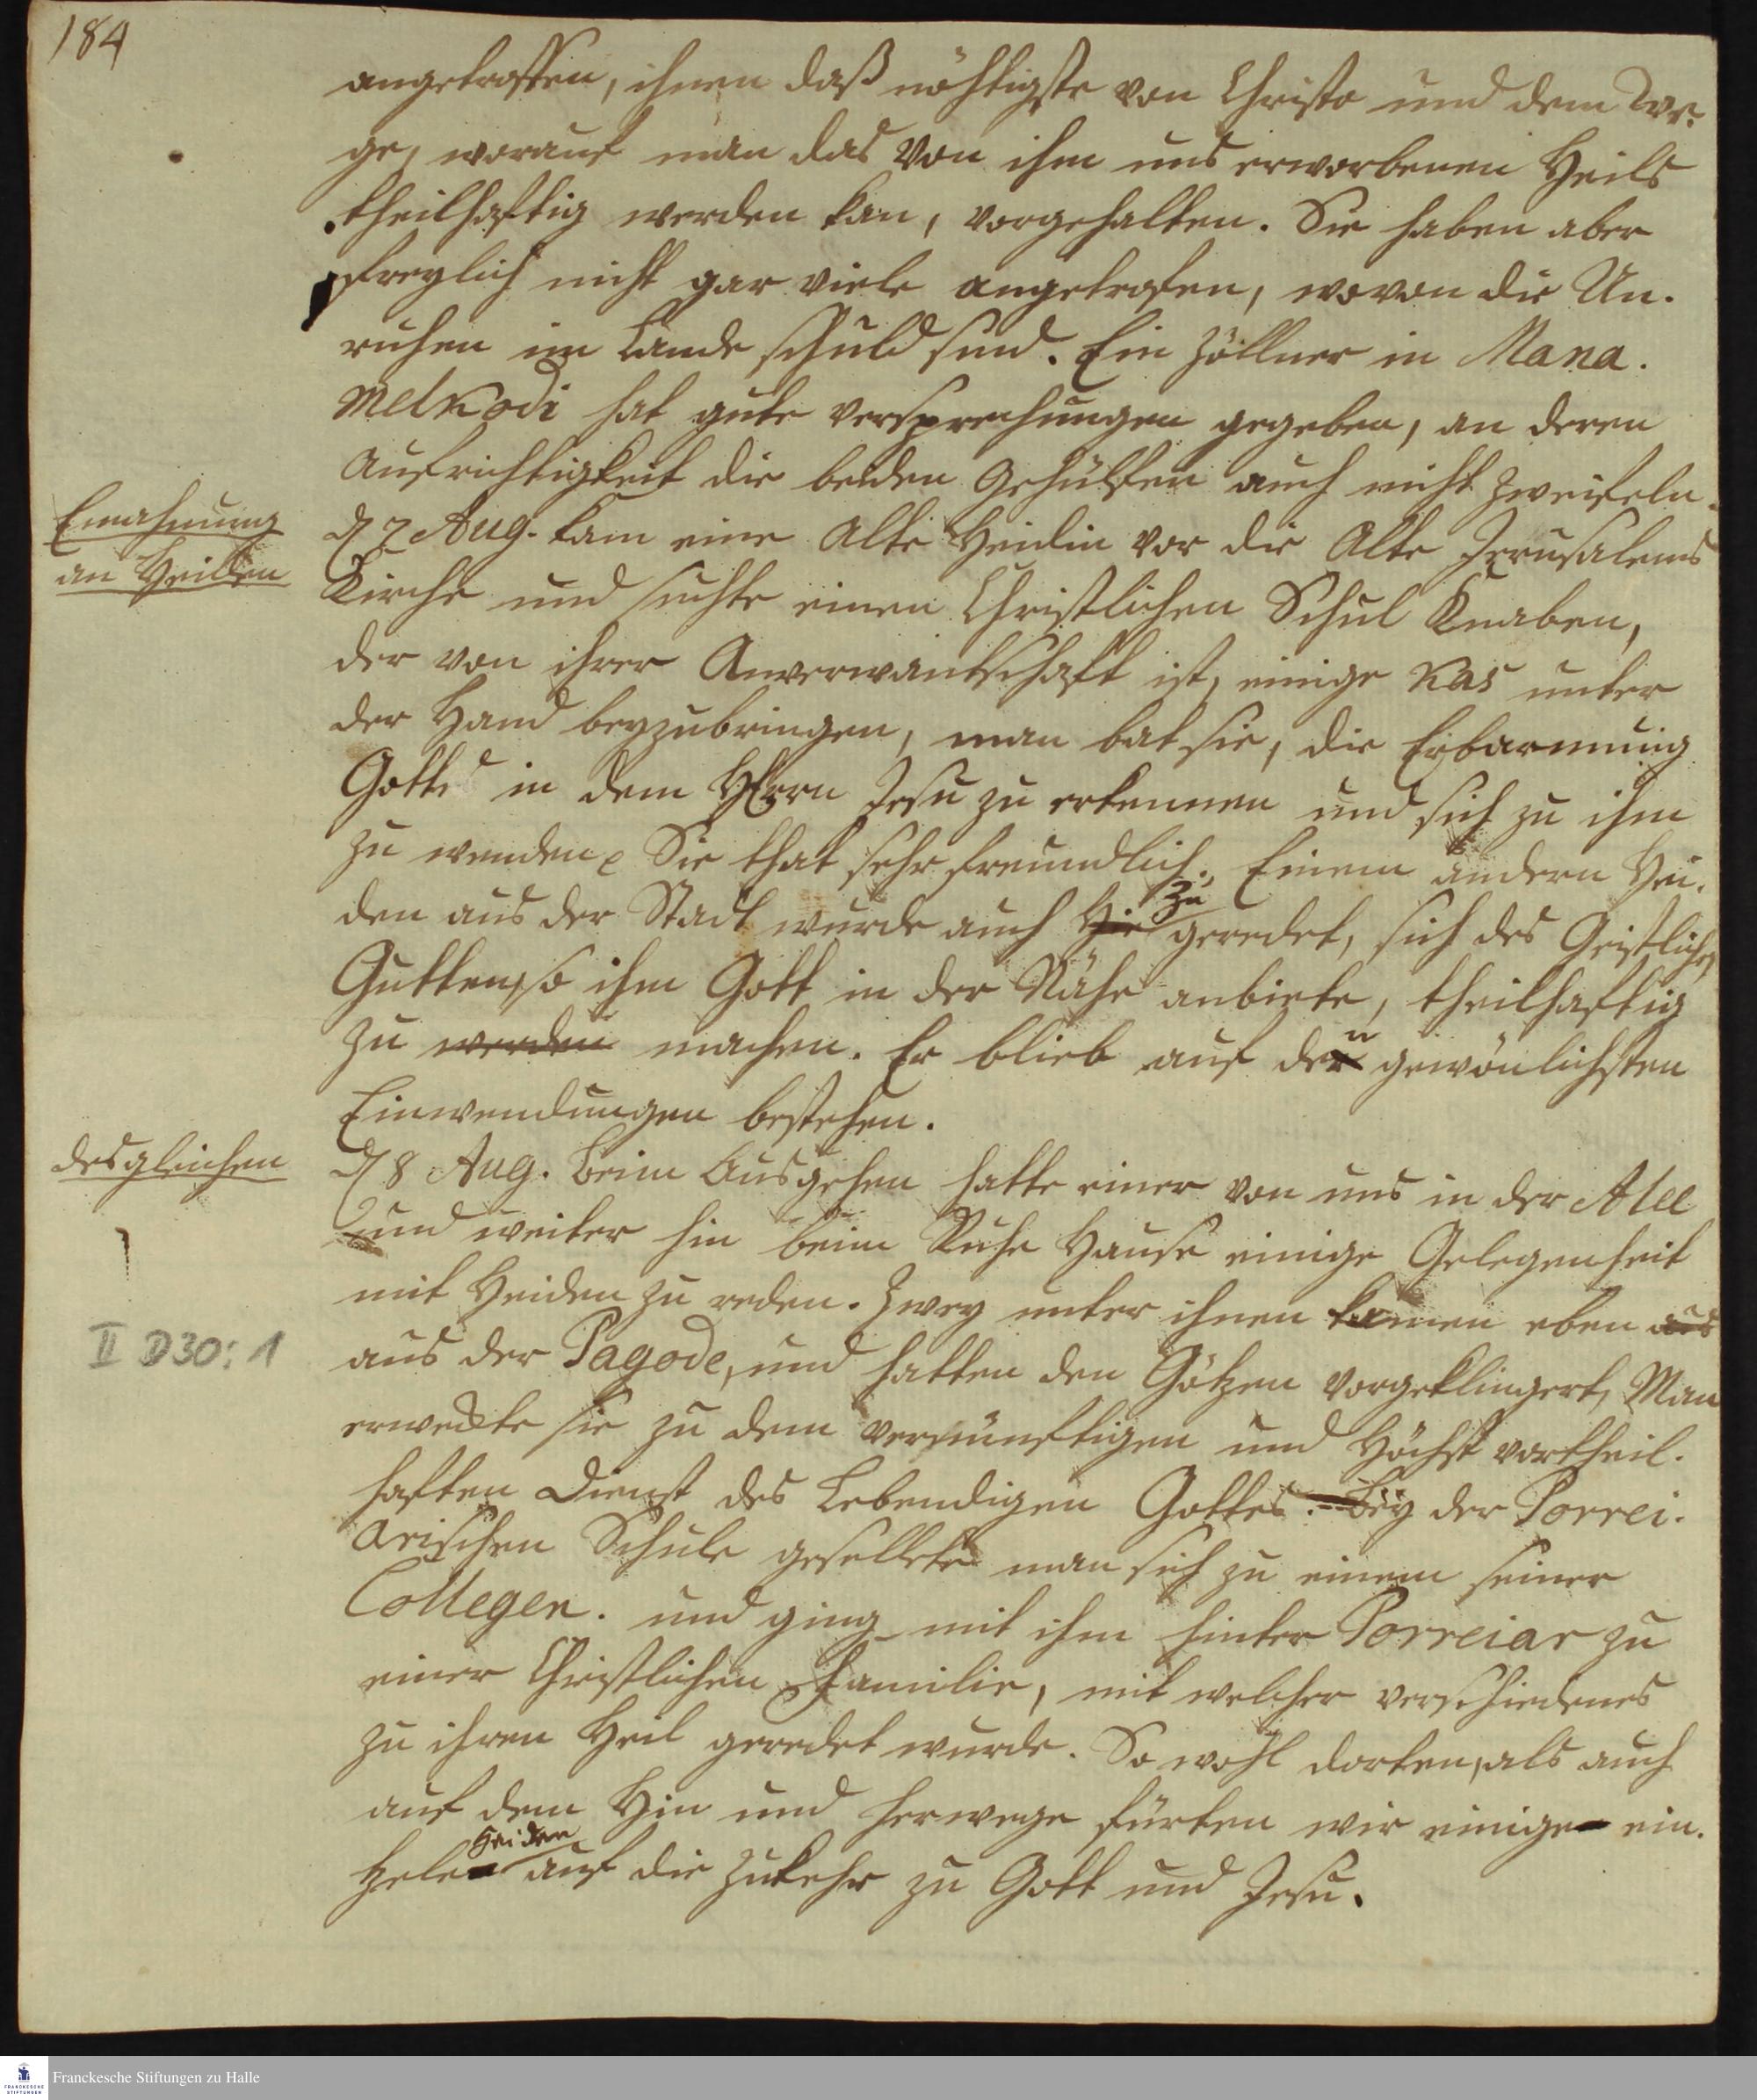 184
angetroffen, ihnen daß nöhtigste von Christo und dem We-
ge, worauf man das von ihm uns erworbenen Heils
theilhaftig werden kan, vorgehalten. Sie haben aber
freylich nicht gar viele angetrofen, wovon die Un-
ruhen im Lande schuld sind. Ein Zöllner in Mana-
melkodi hat gute Versprechungen gegeben, an deren
Aufrichtigkeit die beiden Gehülfen auch nicht zweifeln.
Ermahnung
an Heiden
d 7 Aug. kam eine Alte Heidin vor die Alte Jerusalems
Kirche und suchte einen Christlichen Schul Knaben,
der von ihrer Anverwantschaft ist, einige Kas unter
der Hand beyzubringen, man bat sie, die Erbarmung
Gottes in dem HErrn Jesu zu erkennen und sich zu ihm
zu wenden. Sie that sehr freundlich. Einem andern Hei-
den aus der Stadt wurde auch Hie zu geredet, sich des Geistlichen
Gutten, so ihm Gott in der Nähe anbiete, theilhaftig
zu werden machen. Er blieb auf den gewönlichsten
Einwendungen bestehen.
desgleichen
d 8 Aug. Beim Ausgehen hatte einer von uns in der Alee
und weiter hin beim Ruhe Hause einige Gelegenheit
mit Heiden zu reden. Zwey unter ihnen kamen eben aus
II D30: 1
aus der Pagode, und hatten den Götzen vorgeklingert, Man
erweckte sie zu dem vernünftigen und Höchst vortheil-
haften Dienst des Lebendigen Gottes. Bey der Porrei-
arischen Schule gesellete man sich zu einem seiner
Collegen. und ging mit ihm hinter Porreiar zu
einer Christlichen Familie, mit welcher verschiedenes
zu ihren Heil geredet wurde. So wohl dorten, als auch
auf dem Hin und herwege fürten wir einige ein-
zele Heiden auf die Zukehr zu Gott und Jesu.
FRANCKESCHE STIFTUNGEN
Franckesche Stiftungen zu Halle